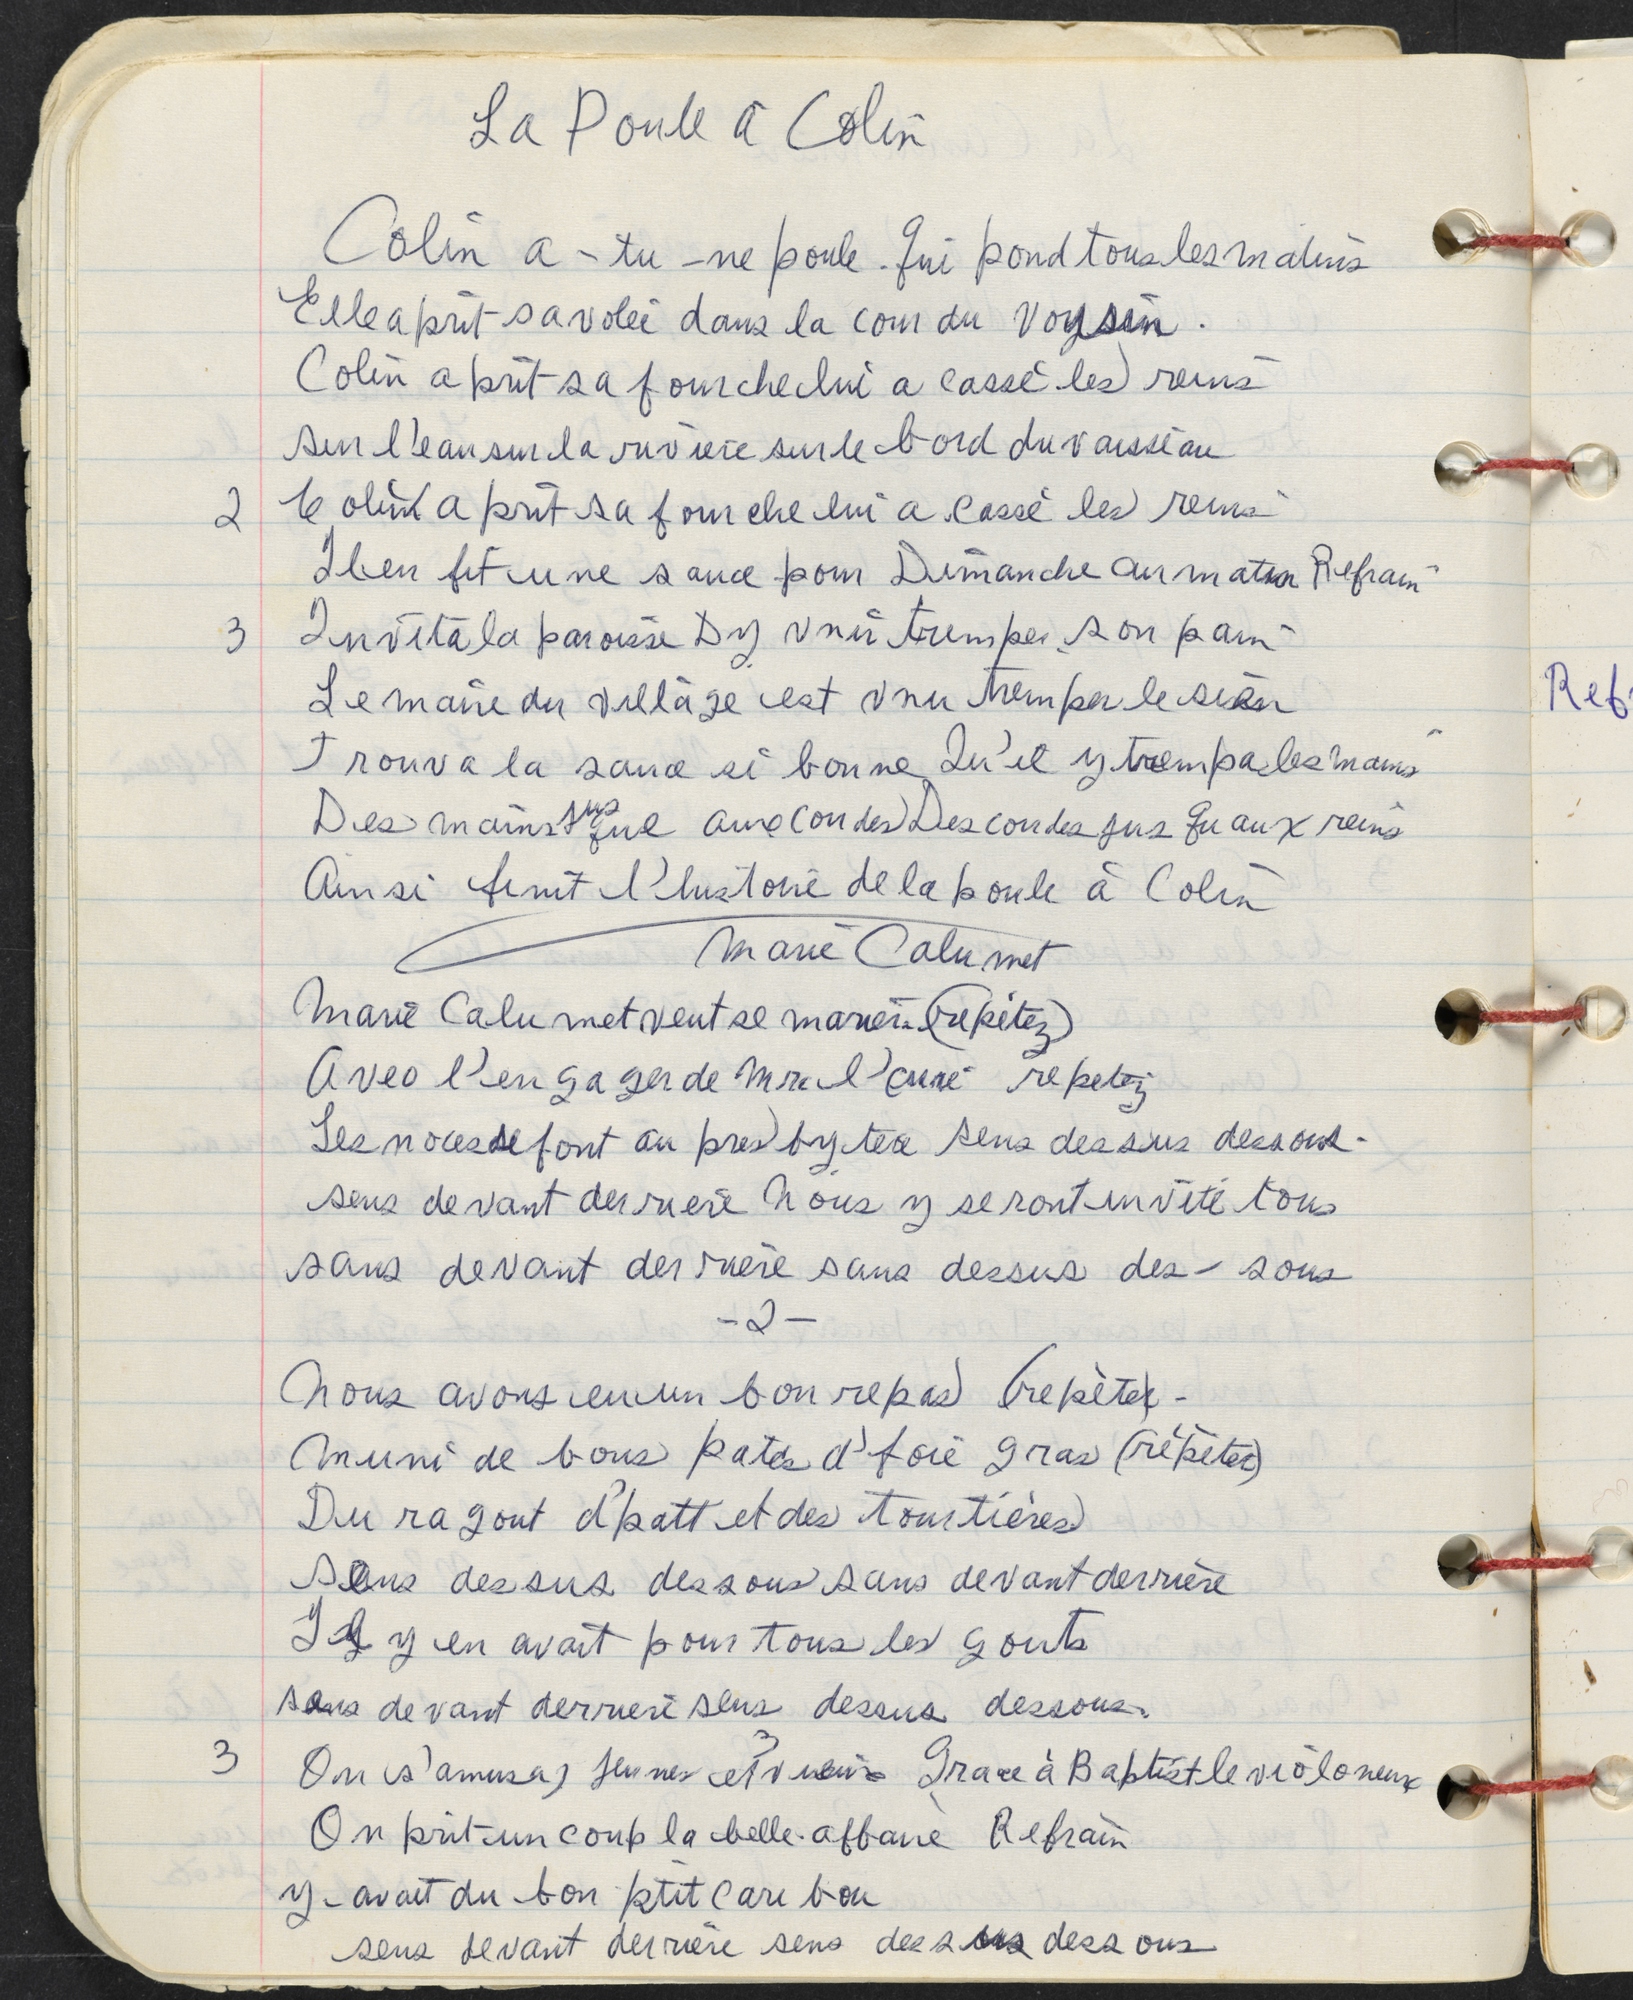 La Poule à Colin
Colin a - tu - ne poule. Qui pond tous les matins
Elle a prit sa volée dans la cour du voysin.
Colin a prit sa fourche lui a cassé les reins
sur l'eau sur la rivière sur le bord du vaisseau
2 Colin a prit sa fourche lui a cassé les reins
Il en fit une sauce pour Dimanche au matin Refrain
3 Invita la paroisse D'y v'nir tremper son pain
Le maire du village est v'nu tremper le sien
Trouva la sauce si bonne Qu'il y trempa les mains
Des mains jusque aux coudes Des coudes jus qu aux reins
Ainsi finit l'histoire de la poule à Colin
Marie Calumet
Marie Calumet veut se marier (répétez)
Avec l'engager de Mr l'curé repetez
Les noces se font au presbytere sens dessus dessous.
sens devant derriere Nous y seront invité tous
sans devant derrière sans dessus des - sous
- 2 -
Nous avons eu un bon repas (repètez -
Muni de bons patés d'foie gras (répètez)
Du ragout d'patt et des tourtières
sens dessus dessous sans devant derrière
Il y en avait pour tous les gouts
sens devant derrière sens dessus dessous.
3 On s'amusa, jeunes et vieux Grace à Baptist le violoneux
On prit un coup la belle affaire Refrain
y - avait du bon ptit caribou
sens devant derrière sens dessus dessous
Ref